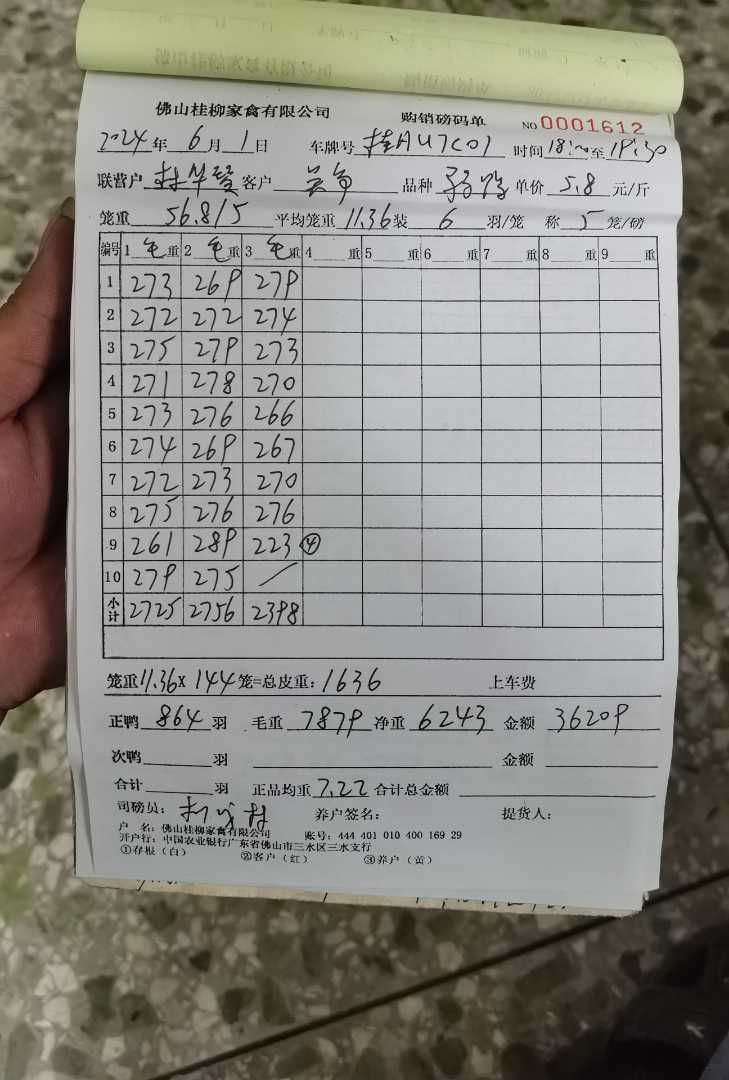 佛山桂柳家禽有限公司 购销磅码单 NO 0001612
2024年 6月 1日 车牌号 桂AU7C01 时间 18:00至19:30
联营户 客户 品种 单价 5.8 元/斤
笼重 56.8/5 平均笼重 11.36 装 6 羽/笼 称 5 笼/磅
编号 1 毛重 2 毛重 3 毛重 4 重 5 重 6 重 7 重 8 重 9 重
1 273 269 279
2 272 272 274
3 275 279 273
4 271 278 270
5 273 276 266
6 274 269 267
7 272 273 270
8 275 276 276
9 261 289 223 ④
10 279 275 /
小计 2725 2756 2398
笼重 11.36 x 144 笼=总皮重: 1636 上车费
正鸭 864 羽 毛重 7879 净重 6243 金额 36209
次鸭 羽 金额
合计 羽 正品均重 7.22 合计总金额
司磅员: 养户签名: 提货人:
户 名: 佛山桂柳家禽有限公司 账号: 444 401 010 400 169 29
开户行: 中国农业银行广东省佛山市三水区三水支行
①存根（白） ②客户（红） ③养户（黄）